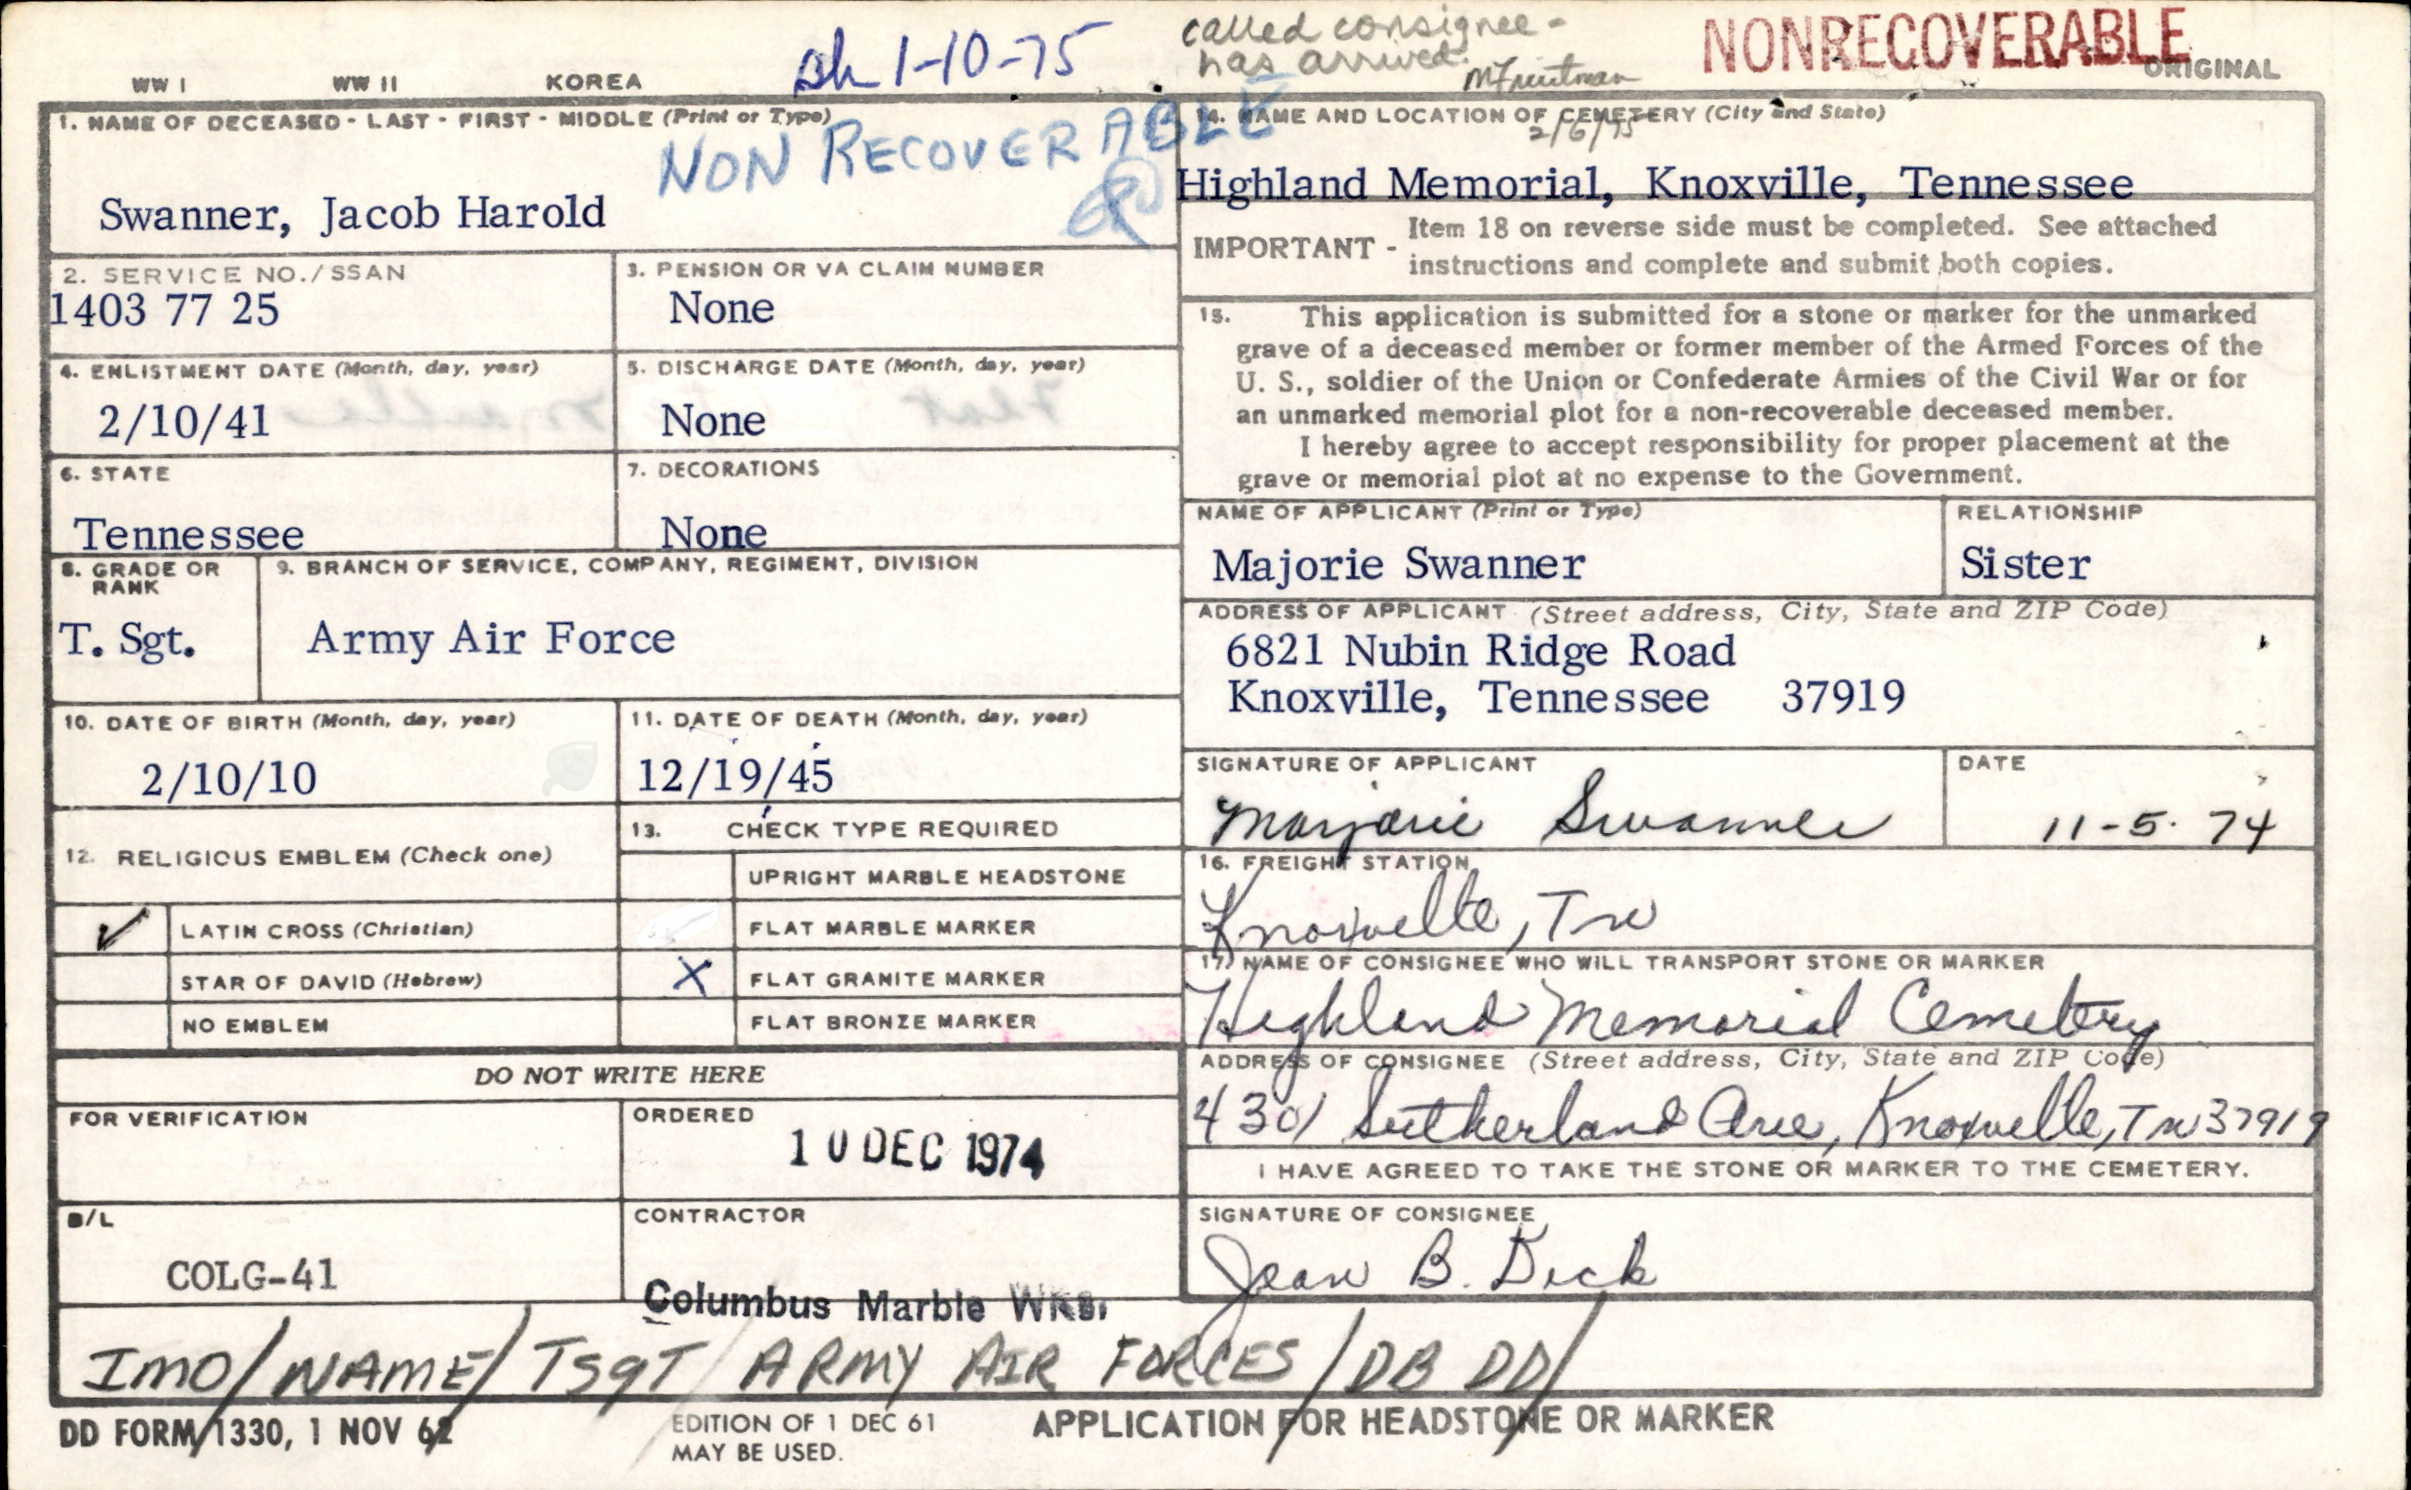 called consignee -
has arrived.
NONRECOVERABLE
sh 1-10-75
ORIGINAL
WW I WW II KOREA
1. NAME OF DECEASED - LAST - FIRST - MIDDLE (Print or Type)
NON RECOVERABLE
Swanner, Jacob Harold
2. SERVICE NO./SSAN
1403 77 25
3. PENSION OR VA CLAIM NUMBER
None
4. ENLISTMENT DATE (Month, day, year)
2/10/41
5. DISCHARGE DATE (Month, day, year)
None
6. STATE
Tennessee
7. DECORATIONS
None
8. GRADE OR
RANK
T. Sgt.
9. BRANCH OF SERVICE, COMPANY, REGIMENT, DIVISION
Army Air Force
10. DATE OF BIRTH (Month, day, year)
2/10/10
11. DATE OF DEATH (Month, day, year)
12/19/45
12. RELIGIOUS EMBLEM (Check one)
✓ LATIN CROSS (Christian)
STAR OF DAVID (Hebrew)
NO EMBLEM
13. CHECK TYPE REQUIRED
UPRIGHT MARBLE HEADSTONE
FLAT MARBLE MARKER
X FLAT GRANITE MARKER
FLAT BRONZE MARKER
DO NOT WRITE HERE
FOR VERIFICATION
ORDERED
10 DEC 1974
B/L
COLG-41
CONTRACTOR
Columbus Marble Wks.
14. NAME AND LOCATION OF CEMETERY (City and State)
2/6/75
Highland Memorial, Knoxville, Tennessee
IMPORTANT - Item 18 on reverse side must be completed. See attached
instructions and complete and submit both copies.
15. This application is submitted for a stone or marker for the unmarked
grave of a deceased member or former member of the Armed Forces of the
U. S., soldier of the Union or Confederate Armies of the Civil War or for
an unmarked memorial plot for a non-recoverable deceased member.
I hereby agree to accept responsibility for proper placement at the
grave or memorial plot at no expense to the Government.
NAME OF APPLICANT (Print or Type)
Majorie Swanner
RELATIONSHIP
Sister
ADDRESS OF APPLICANT (Street address, City, State and ZIP Code)
6821 Nubin Ridge Road
Knoxville, Tennessee 37919
SIGNATURE OF APPLICANT
Marjorie Swanner
DATE
11-5-74
16. FREIGHT STATION
Knoxville, Tn
17. NAME OF CONSIGNEE WHO WILL TRANSPORT STONE OR MARKER
Highland Memorial Cemetery
ADDRESS OF CONSIGNEE (Street address, City, State and ZIP Code)
4301 Sutherland Ave, Knoxville, Tn 37919
I HAVE AGREED TO TAKE THE STONE OR MARKER TO THE CEMETERY.
SIGNATURE OF CONSIGNEE
Jean B. Dick
IMO/NAME/TSGT/ARMY AIR FORCES/DB DD/
DD FORM 1330, 1 NOV 62
EDITION OF 1 DEC 61
MAY BE USED.
APPLICATION FOR HEADSTONE OR MARKER